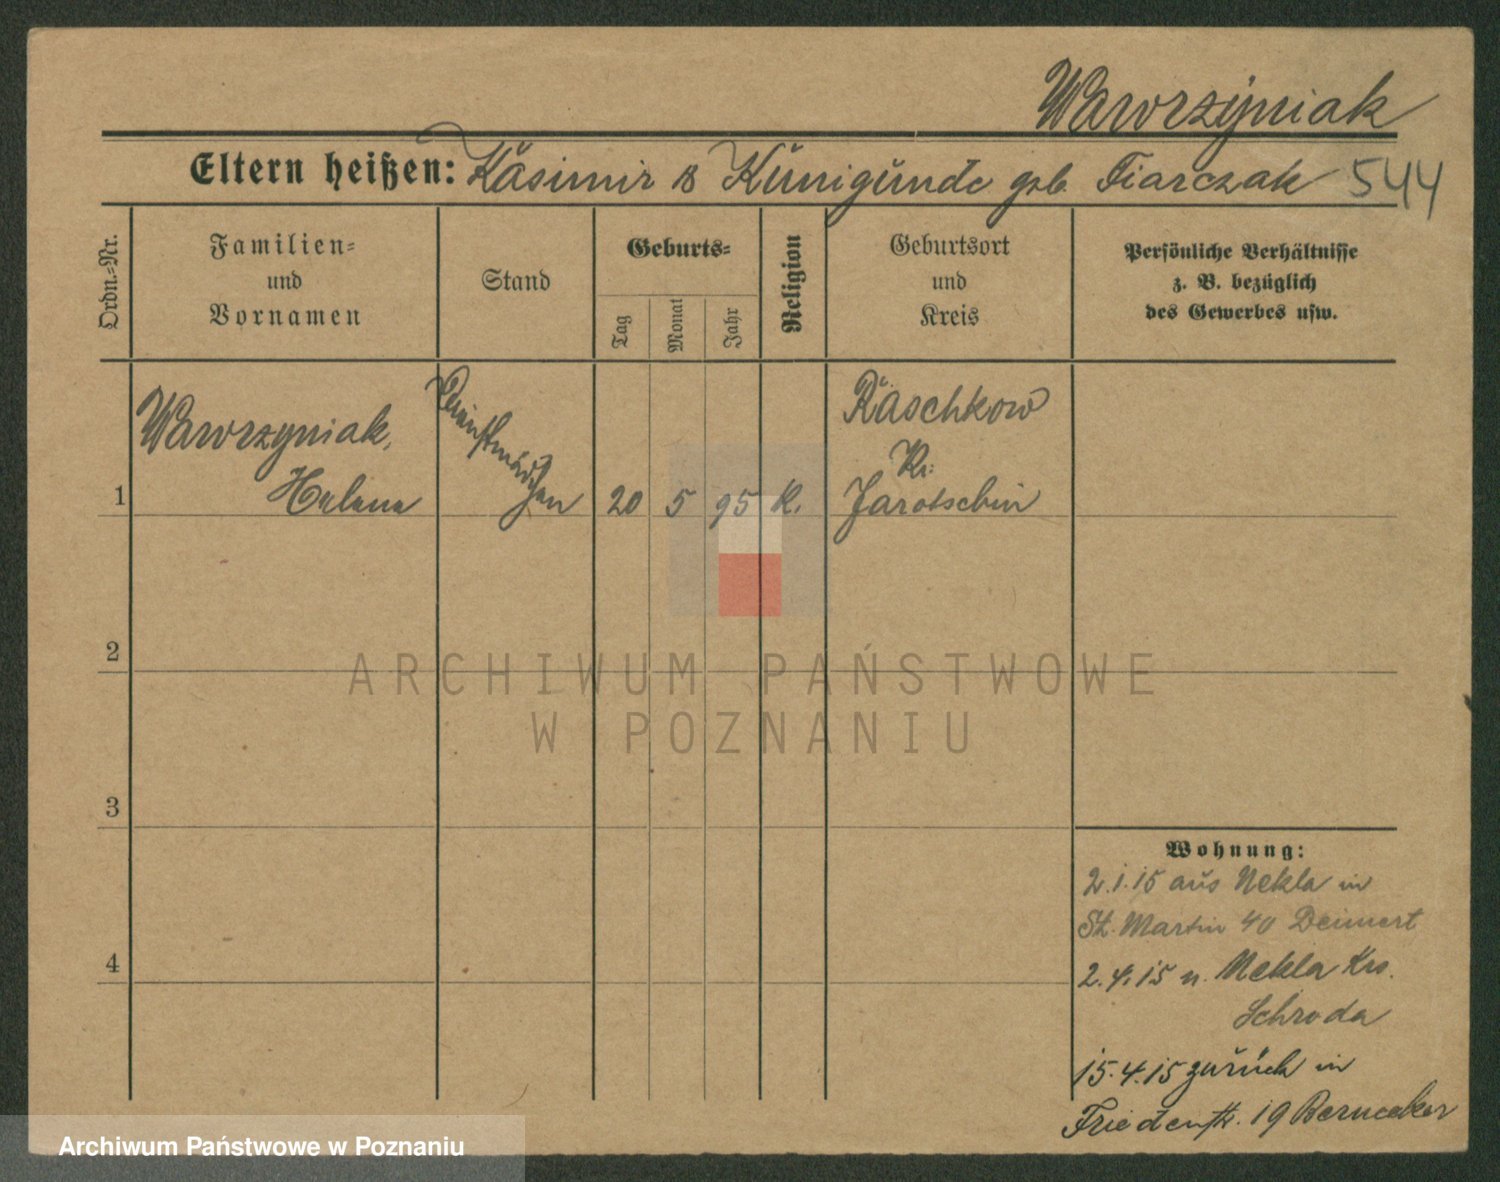 Wawrzyniak
Eltern heißen: Kasimir & Kunigunde geb. Fiarczak 544
Ordn.-Nr.
Familien-
und
Vornamen
Stand
Geburts-
Tag
Monat
Jahr
Religion
Geburtsort
und
Kreis
Persönliche Verhältnisse
z. B. bezüglich
des Gewerbes usw.
1
Wawrzyniak,
Helene
Dienstmädchen
20 5 95 K.
Raschkow
Kr.
Jarotschin
2
ARCHIWUM PAŃSTWOWE
W POZNANIU
3
4
Wohnung:
2.1.15 aus Nekla in
St. Martin 40
2.4.15 n. Nekla Krs.
Schroda
15.4.15 zurück in
Friedenstr. 19
Archiwum Państwowe w Poznaniu